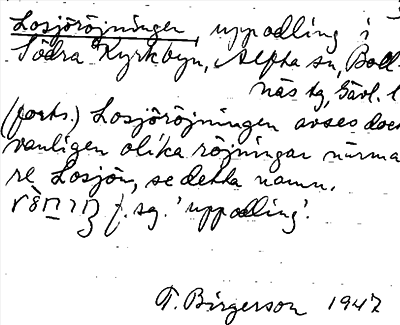 Losjöröjningen, uppodling i
Södra Kyrkbyn, Alfta sn, Boll-
näs tg, Gävl. l
(forts.) Losjöröjningen avses doek
vanligen olika röjningar närma
re Losjön, se detta namn.
f. sg. 'uppodling'.
T. Birgerson 1947